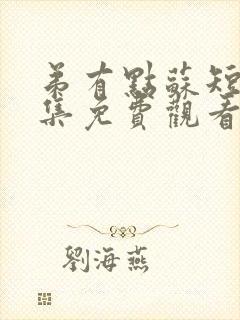 弟有點蘇短
集免費觀看
劉海燕